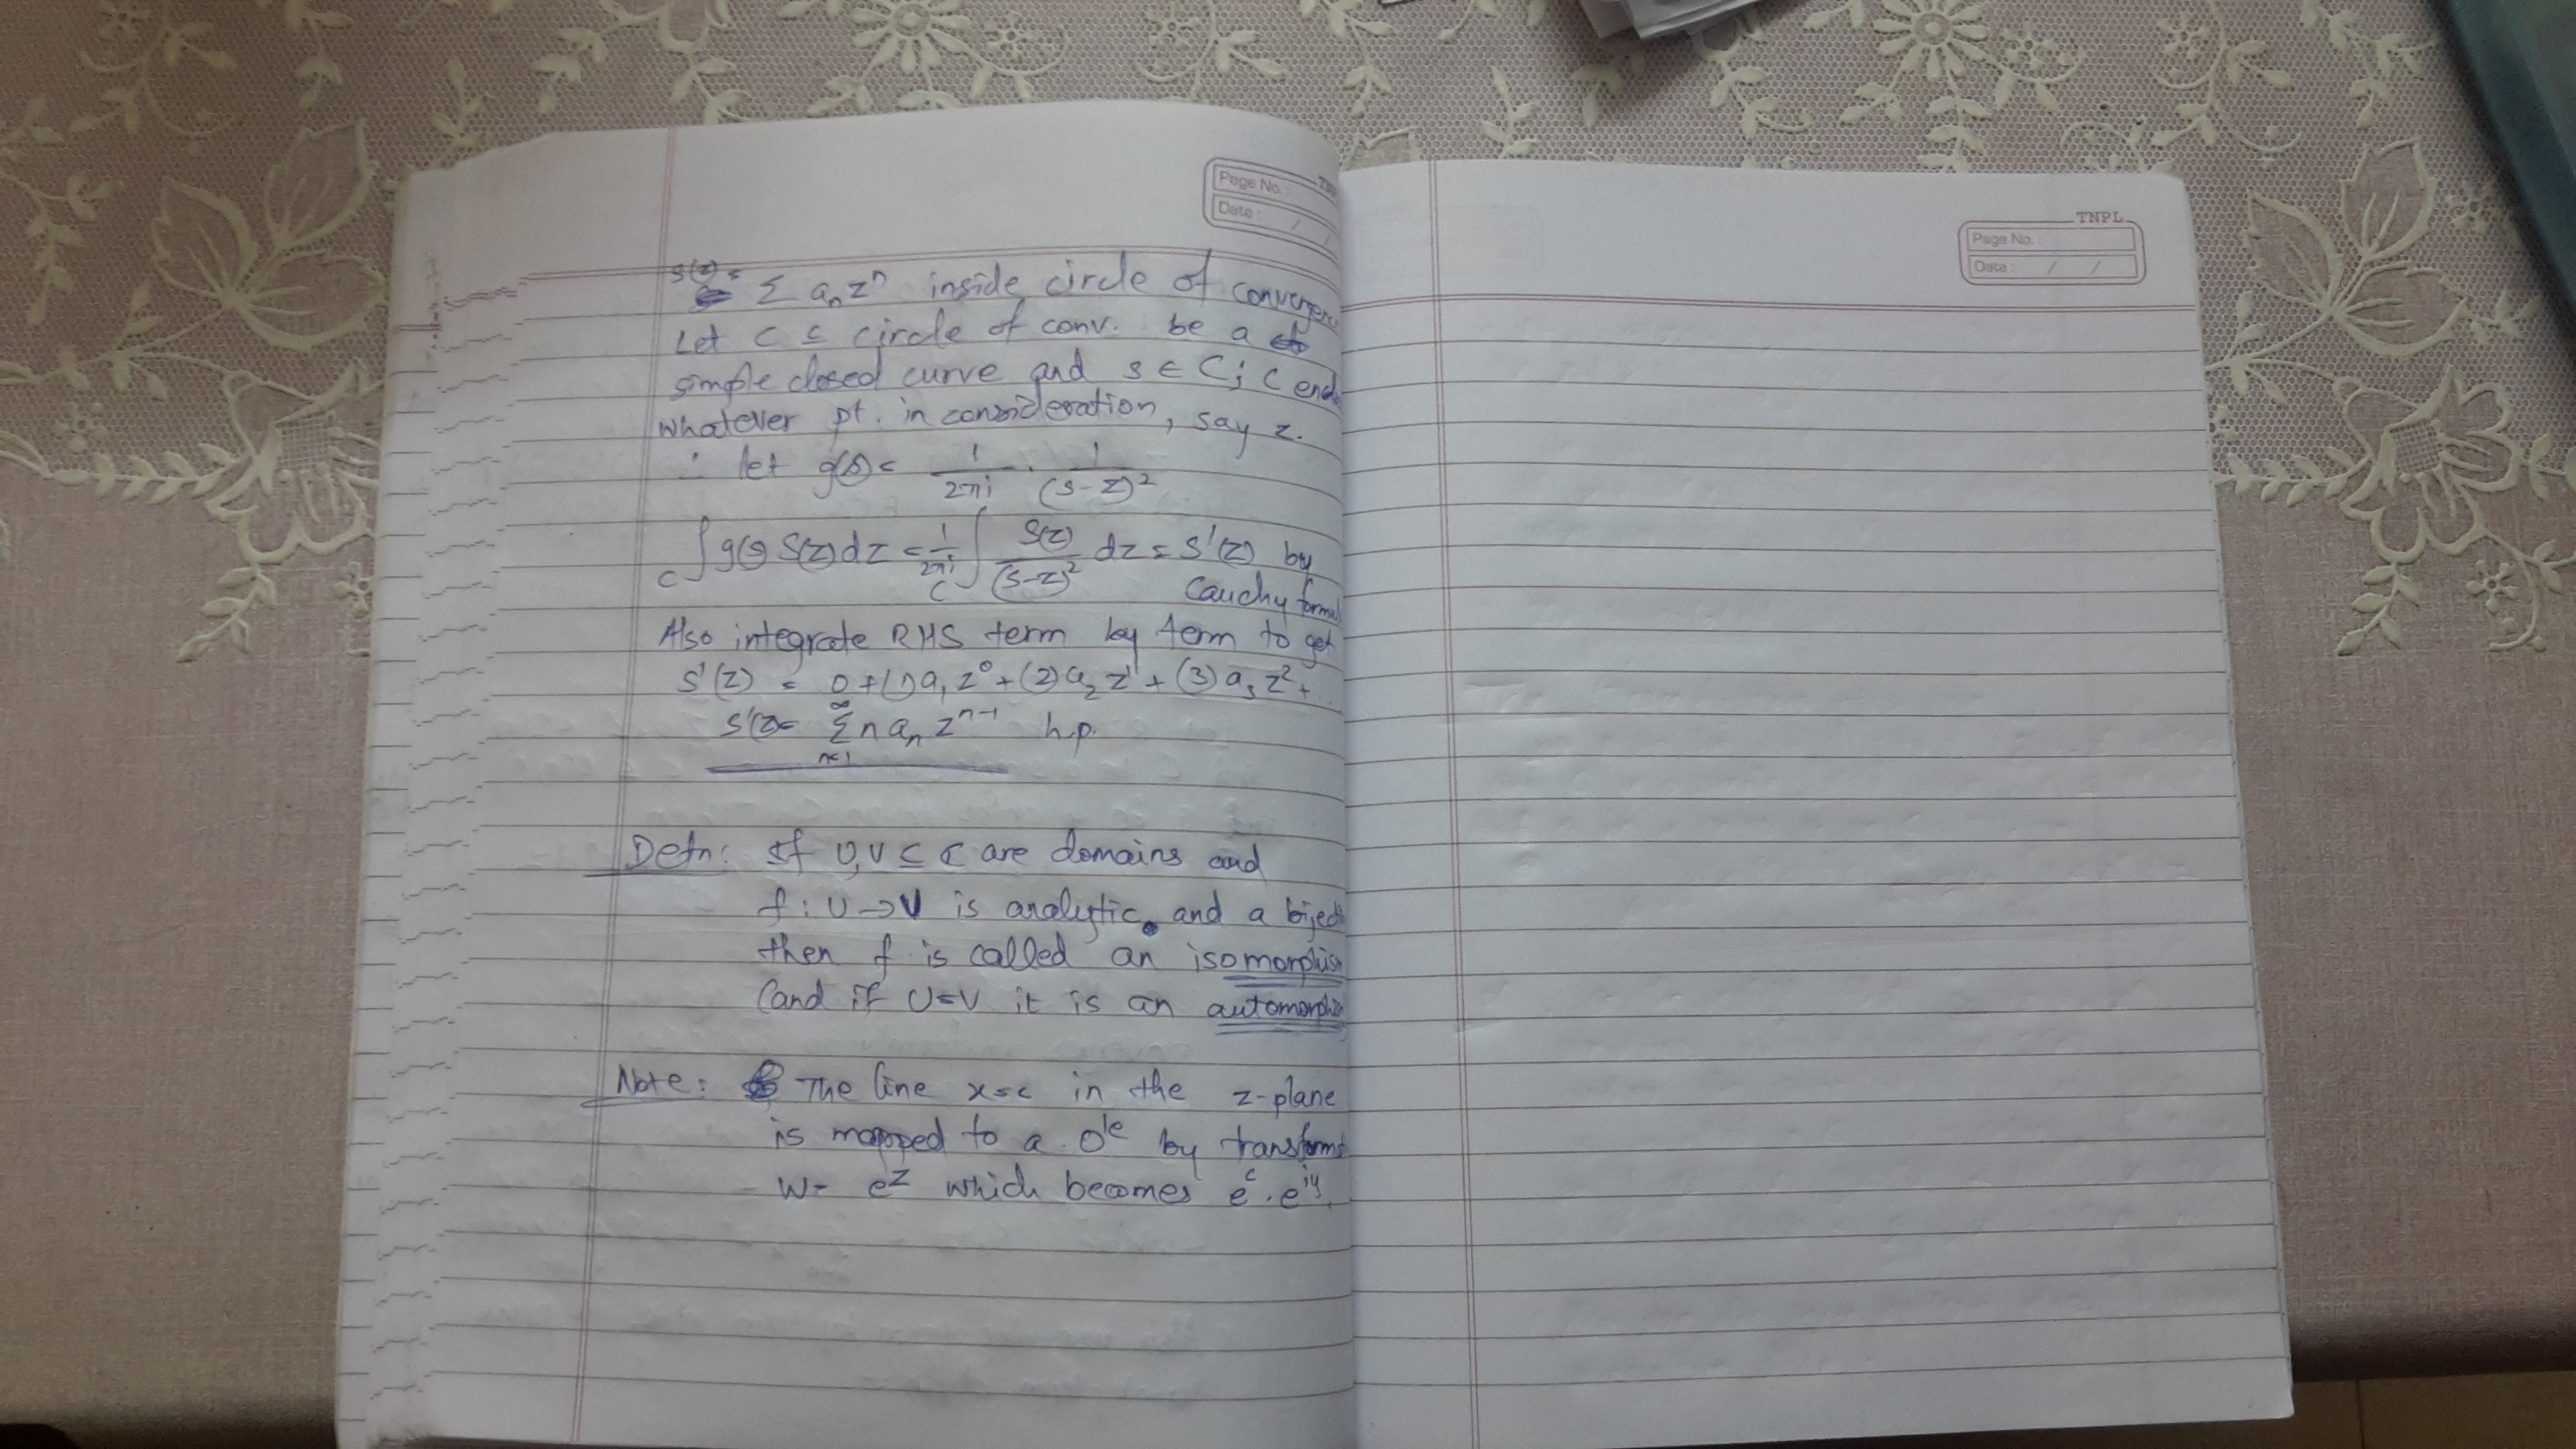 Page No.:
Date: / /
S(z) = Σ aₙ zⁿ inside circle of convergenc
Let C ⊆ circle of conv. be a
simple closed curve and s ∈ C; C encl
whatever pt. in consideration, say z.
∴ let g(s) = 1/2πi · 1/(s-z)²
∫_C g(s) S(z) dz = 1/2πi ∫_C S(z)/(s-z)² dz = S'(z) by
Cauchy formul
Also integrate RHS term by term to get
S'(z) = 0 + (1)a₁ z⁰ + (2)a₂ z¹ + (3)a₃ z² + ...
S'(z) = ∞ Σ n=1 n aₙ zⁿ⁻¹ h.p.
Defn: If U,V ⊆ ℂ are domains and
f: U → V is analytic and a bijecti
then f is called an isomorphism
(and if U=V it is an automorphism
Note: The line x=c in the z-plane
is mapped to a Oˡᵉ by transform
W= eᶻ which becomes eᶜ . eⁱʸ.
TNPL
Page No.:
Date: / /